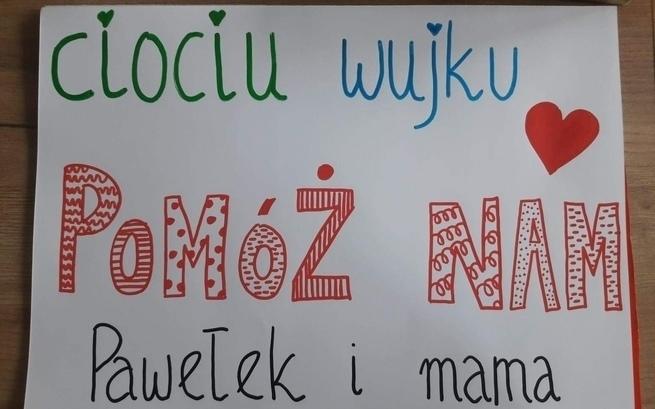 ciociu wujku
POMÓŻ NAM
Pawełek i mama